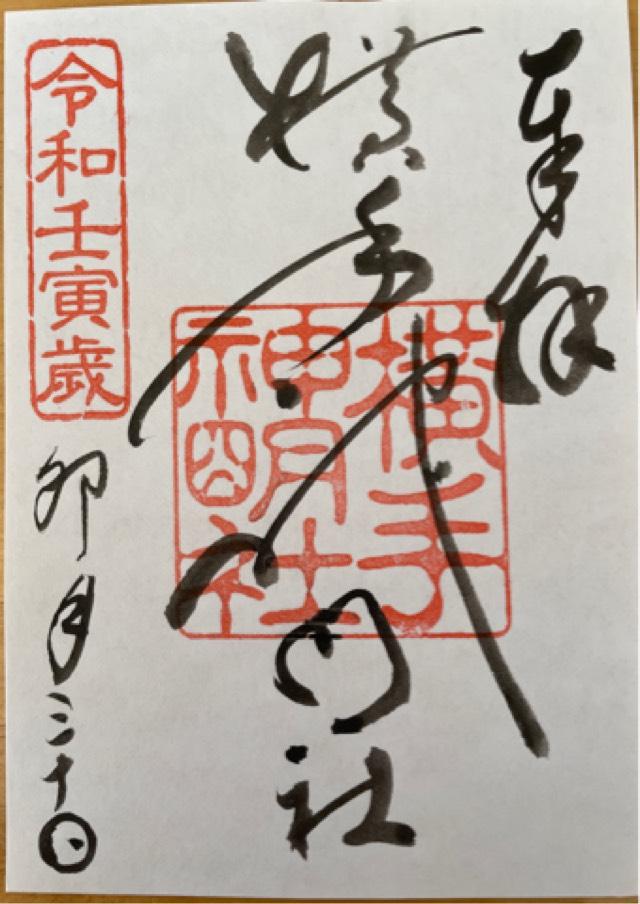 奉拝
横手神明社
横手
神明社
令和壬寅歳
卯月三十日